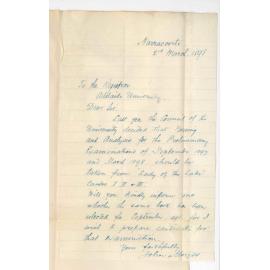 Narracoorte
2nd March 1898
To the Registrar
Adelaide University.
Dear Sir
Last year the Council of the
University decided that Parsing
and Analysis for the Preliminary
Examinations of September 1897
and March 1898 should be
taken from Lady of the Lake
Cantos I II & III.
Will you kindly inform me
whether the same book has been
selected for September 98, for I
wish to prepare candidates for
that examination.
Yours faithfully